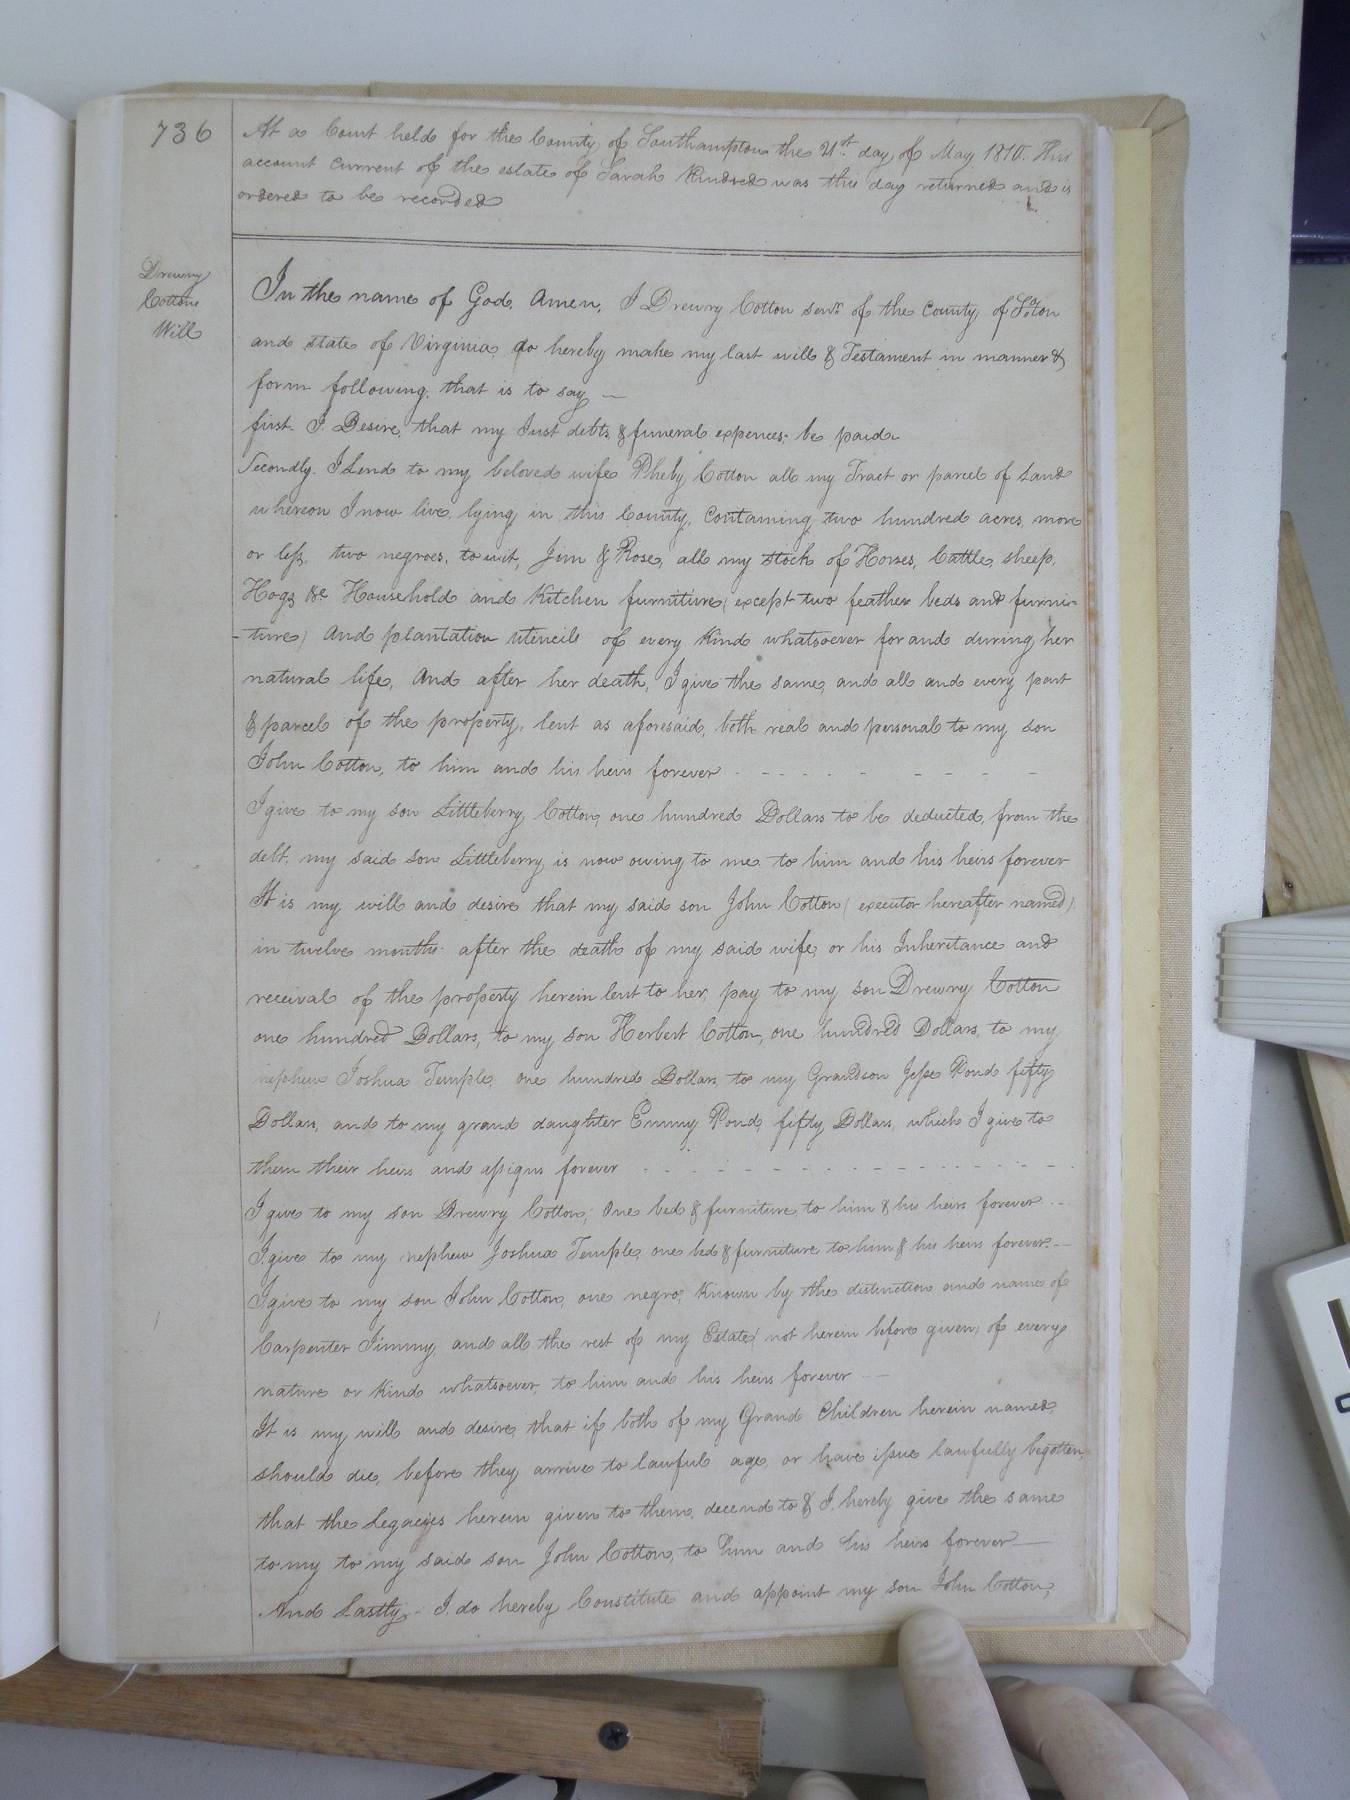 736
At a Court held for the County of Southampton the 21st day of May 1810. This
account current of the estate of Sarah Kindred was this day returned and is
ordered to be recorded
Drewry
Cottons
Will
In the name of God, Amen, I Drewry Cotton senr. of the County of Soton
and state of Virginia do hereby make my last will & Testament in manner &
form following, that is to say —
first. I Desire that my Just debts & funeral expences be paid
Secondly. I Lend to my beloved wife Pheby Cotton all my Tract or parcel of Land
whereon I now live lying in this County, Containing two hundred acres, more
or less, two negroes, to wit, Jim & Rose, all my stock of Horses, Cattle, sheep,
Hogs &c Household and Kitchen furniture (except two feather beds and furni-
-ture) And plantation utencils of every Kind whatsoever for and during her
natural life, And after her death, I give the same, and all and every part
& parcel of the property, lent as aforesaid, both real and personal to my son
John Cotton, to him and his heirs forever - - - - - - - - - -
I give to my son Littleberry Cotton, one hundred Dollars to be deducted, from the
debt, my said son Littleberry, is now owing to me to him and his heirs forever
It is my will and desire that my said son John Cotton (executor hereafter named)
in twelve months after the death of my said wife, or his Inheritance and
receival of the property herein lent to her, pay to my son Drewry Cotton
one hundred Dollars, to my son Herbert Cotton, one hundred Dollars, to my
nephew Joshua Temple, one hundred Dollars, to my Grandson Jesse Pond fifty
Dollars, and to my grand daughter Emmy Pond, fifty Dollars, which I give to
them their heirs and assigns forever - - - - - - - - - - - - - - - - -
I give to my son Drewry Cotton, One bed & furniture to him & his heirs forever - - -
I give to my nephew Joshua Temple, one bed & furniture to him & his heirs forever. - -
I give to my son John Cotton, one negro, Known by the distinction and name of
Carpenter Jimmy, and all the rest of my Estate (not herein before given) of every
nature or Kind whatsoever, to him and his heirs forever - -
It is my will and desire, that if both of my Grand Children herein named,
should die, before they arrive to lawful age, or have issue lawfully begotten,
that the Legacyes herein given to them, decend to & I hereby give the same
to my to my said son John Cotton, to him and his heirs forever —
And Lastly - I do hereby Constitute and appoint my son John Cotton,